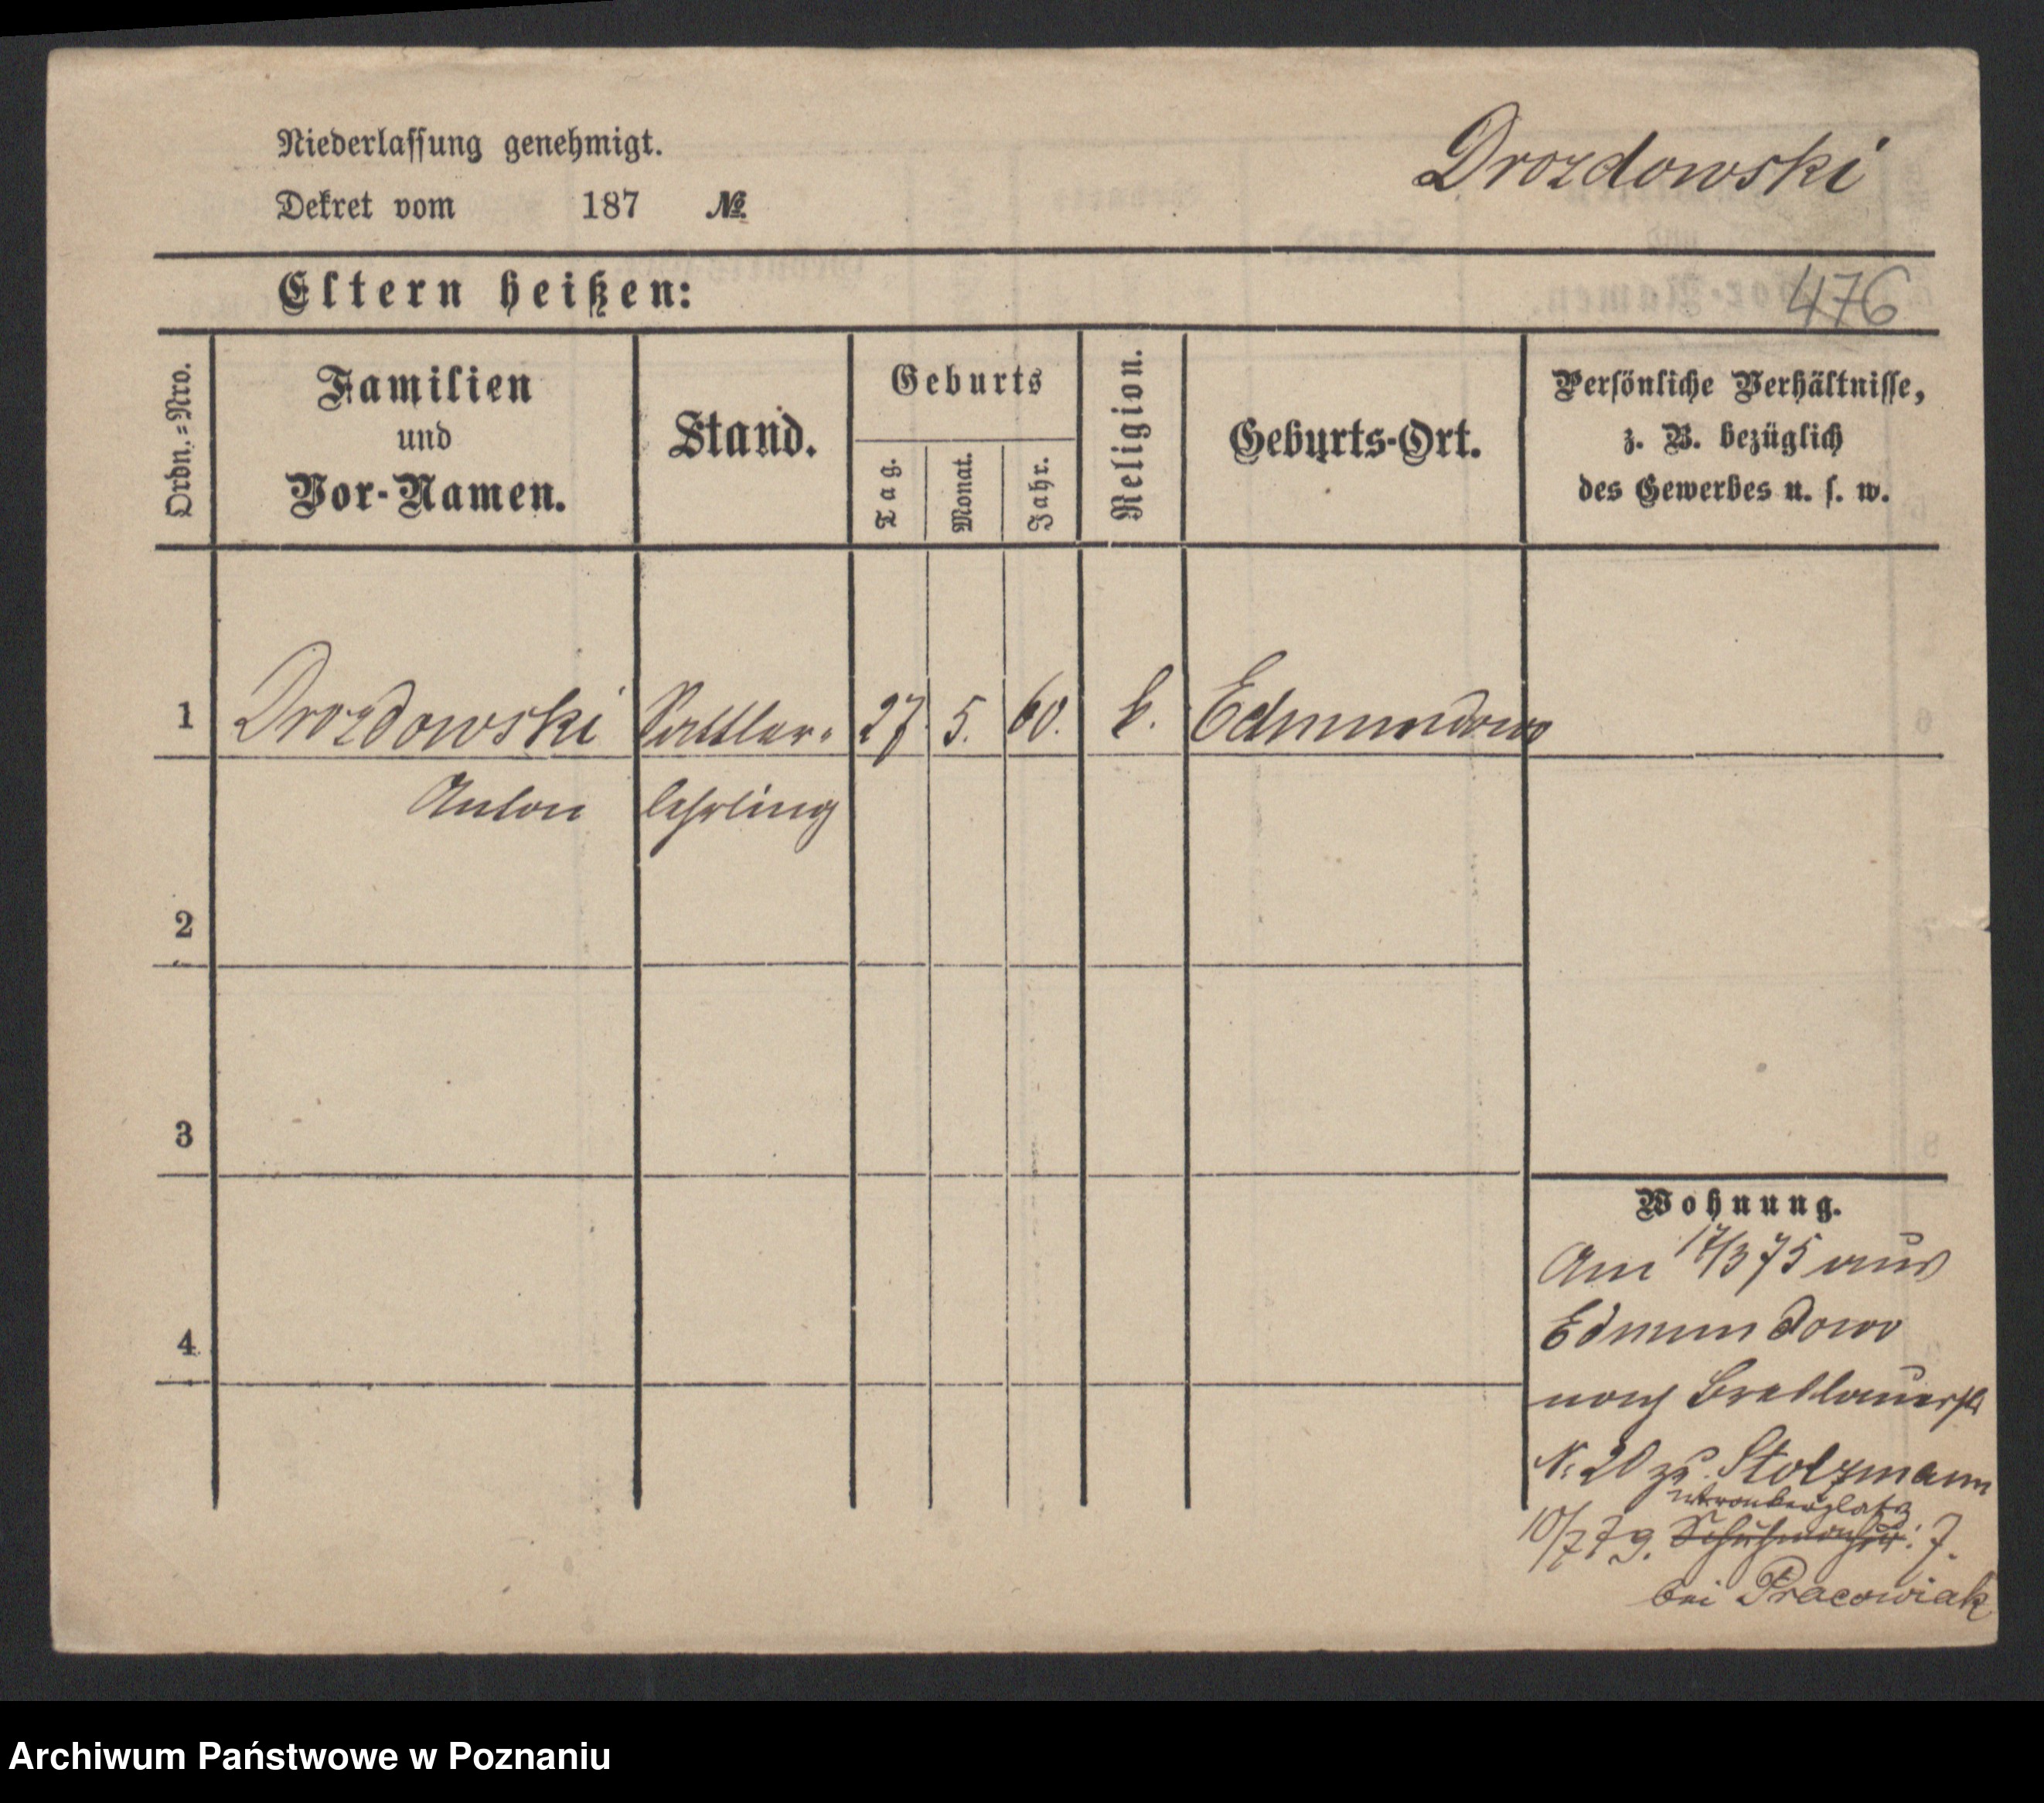 Niederlassung genehmigt.
Dekret vom 187 №
Drozdowski
Eltern heißen:
476
Ordn.=Nro.
Familien
und
Vor-Namen.
Stand.
Geburts
Tag.
Monat.
Jahr.
Religion.
Geburts-Ort.
Persönliche Verhältnisse,
z. B. bezüglich
des Gewerbes u. s. w.
1 Drozdowski Sattler= 27. 5. 60. k. Edmundowo
Anton lehrling
2
3
4
Wohnung.
Am 17/3 75 aus
Edmundowo
nach Breslauerst
N: 20 zu Stolzmann
Wronkerplatz
10/7 79. Schuhmacherst: 7.
bei Pracowiak
Archiwum Państwowe w Poznaniu